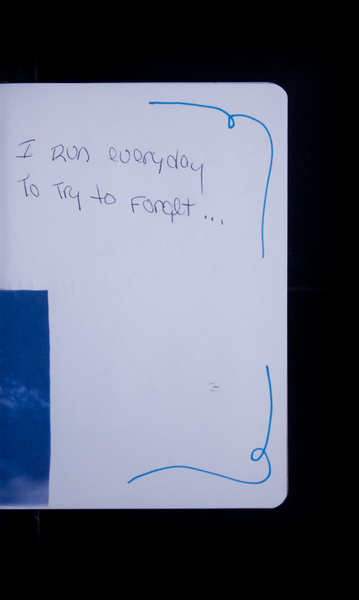 I RUN everyday
To Try to Forget...